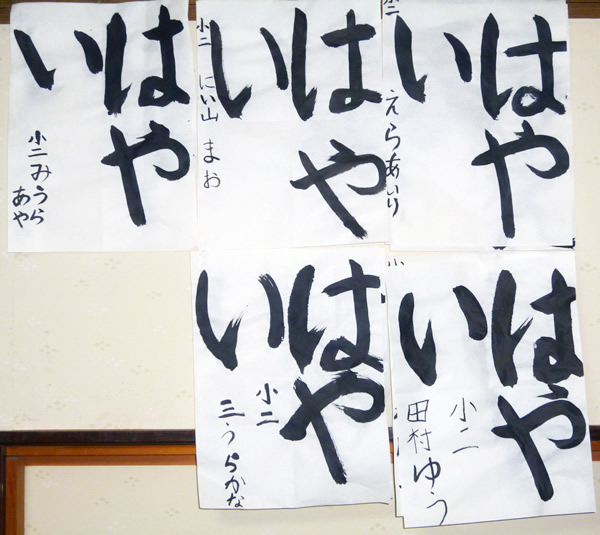 はや
い
小二 えらあいり
はや
い
小二 にい山 まお
はや
い
小二 みうら
あや
はや
い
小二
田村ゆう
はや
い
小二
三うらかな